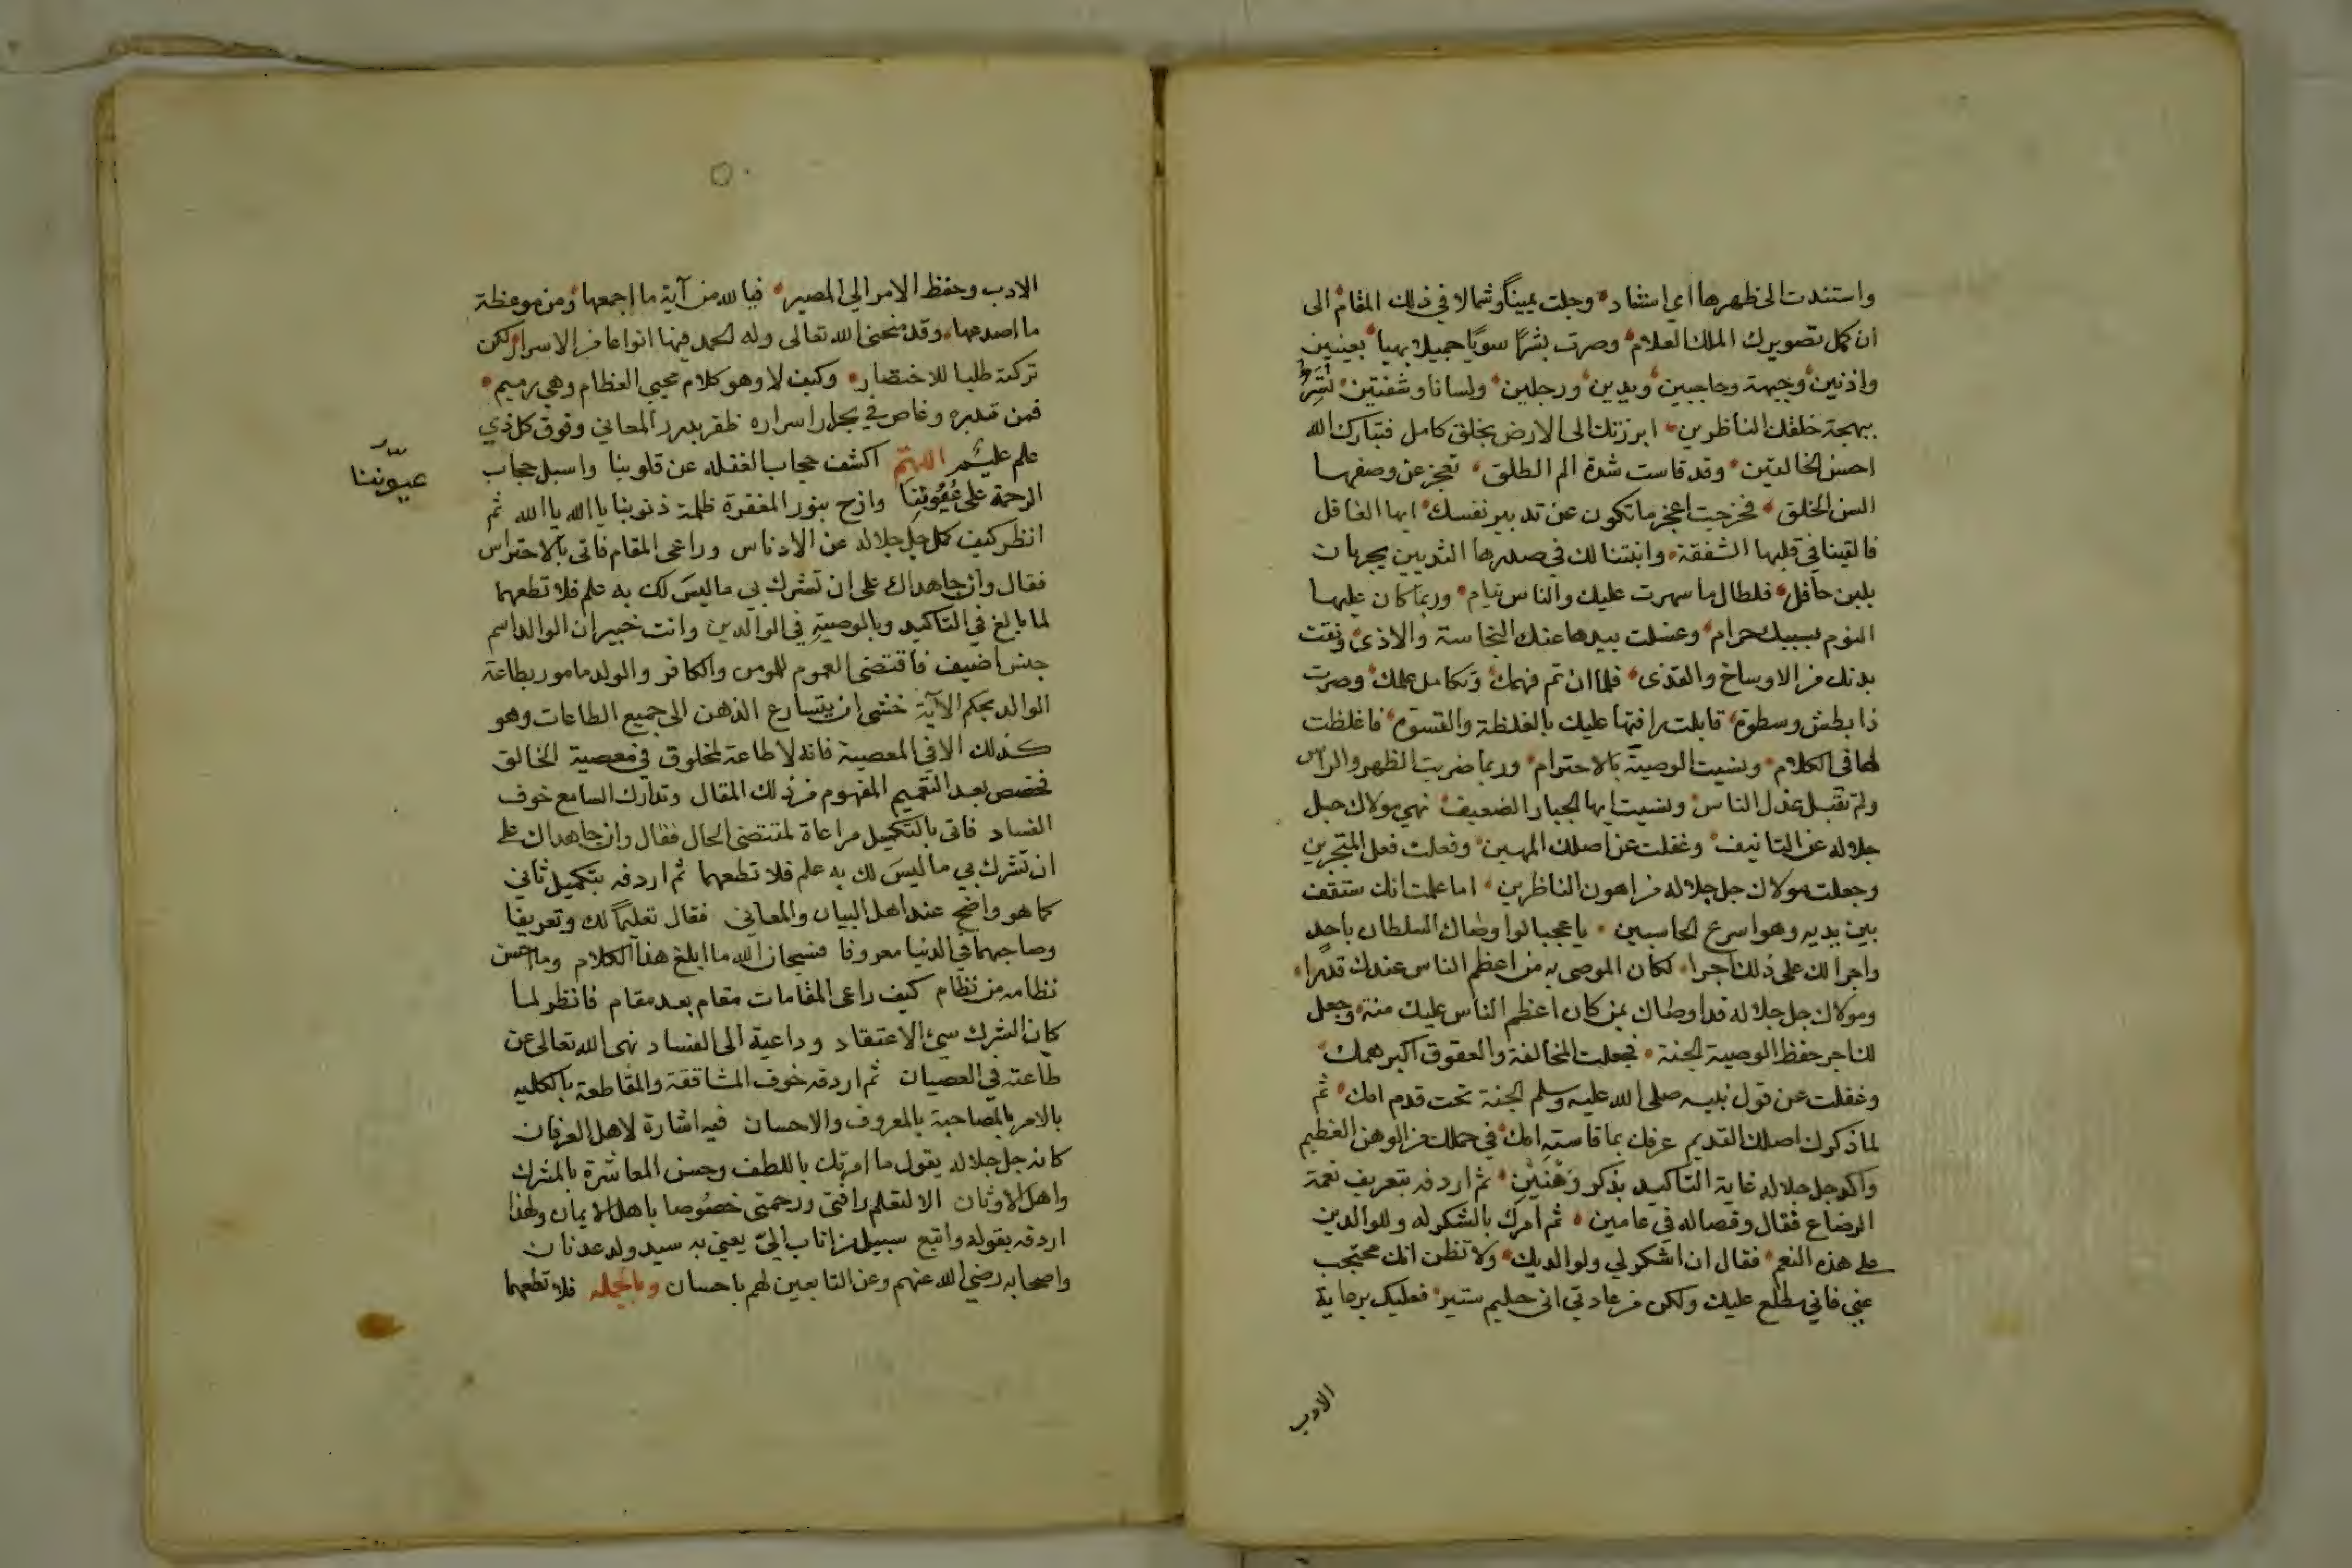 واستندت الى ظهرها اي استناد وجلت يمينا وشمالا في ذلك المقام الى
ان كمل تصويرك الملك العلام وصرت بشرًا سويًا جميلا بهيا بعينين
واذنين وجبهة وحاجبين ويدين ورجلين ولسانا وشفتين
ببهجة خلقك الناظرين ابرزتك الى الارض بخلق كامل فتبارك الله
احسن الخالقين وقد قاست شدة الم الطلق تعجز عن وصفها
السن الخلق فخرجت اعجز ما تكون عن تدبير نفسك ايها الغافل
فالقينا في قلبها الشفقة وانبتنا لك في صدرها الثديين يجريان
بلبن حافل فلطال ما سهرت عليك والناس نيام وربما كان عليها
النوم بسببك حرام وغسلت بيدها عنك النجاسة والاذى ونقت
بدنك من الاوساخ والقذى فلما ان تم فهمك وتكامل عملك وصرت
ذا بطش وسطوة قابلت رافتها عليك بالغلظة والقسوة فاغلظت
لها في الكلام ونسيت الوصية بالاحترام وربما ضربت الظهر والراس
ولم تقبل عذل الناس ونسيت ايها الجبار الضعيف نهي مولاك جل
جلاله عن التانيف وغفلت عن اصلك المهين وفعلت فعل المتجبرين
وجعلت مولاك جل جلاله من اهون الناظرين اما علمت انك ستقف
بين يديه وهو اسرع الحاسبين يا عجبا لو اوصاك السلطان باحد
واجرا لك على ذلك اجرا لكان الموصى به من اعظم الناس عندك قدرا
ومولاك جل جلاله قد اوصاك بمن كان اعظم الناس عليك منة وجعل
لك اجر حفظ الوصية الجنة فجعلت المخالفة والعقوق اكبر همك
وغفلت عن قول نبيه صلى الله عليه وسلم الجنة تحت قدم امك ثم
لما ذكرك اصلك القديم عرفك بما قاسته امك في حملك من الوهن العظيم
واكد جل جلاله غاية التاكيد بذكر وَهْنَيْنِ ثم اردفه بتعريف نعمة
الرضاع فقال وفصاله في عامين ثم امرك بالشكر له وللوالدين
على هذه النعم فقال ان اشكر لي ولوالديك ولا تظن انك محتجب
عني فاني مطلع عليك ولكن من عادتي اني حليم ستير فعليك برعاية
الادب
الادب وحفظ الامر الي المصير فيا لله من آية ما اجمعها ومن موعظة
ما اصدعها وقد منحني الله تعالى وله الحمد فيها انواعا من الاسرار لكن
تركته طلبا للاختصار وكيف لا وهو كلام محيي العظام وهي رميم
فمن تدبره وغاص في بحار اسراره ظفر بدرر المعاني وفوق كل ذي
علم عليم اللهم اكشف حجاب الغفله عن قلوبنا واسبل حجاب
الرحمة على وازح بنور المغفرة ظلمة ذنوبنا يا الله يا الله ثم
عيوننا
انظر كيف كمل جل جلاله عن الادناس وراعى المقام فاتى بالاحتراس
فقال وان جاهداك على ان تشرك بي ما ليس لك به علم فلا تطعهما
لما بالغ في التاكيد وبالوصية في الوالدين وانت خبير ان الوالد اسم
جنس اضيف فاقتضى العموم للمومن والكافر والولد مامور بطاعة
الوالد بحكم الآية خشى ان يتسارع الذهن الى جميع الطاعات وهو
كذلك الا في المعصية فانه لا طاعة لمخلوق في معصية الخالق
فخصص بعد التعميم المفهوم من ذلك المقال وتدارك السامع خوف
الفساد فاتى بالتكميل مراعاة لمقتضى الحال فقال وان جاهداك على
ان تشرك بي ما ليس لك به علم فلا تطعهما ثم اردفه بتكميل ثاني
كما هو واضح عند اهل البيان والمعاني فقال تعليما لك وتعريفا
وصاحبهما في الدنيا معروفا فسبحان الله ما ابلغ هذا الكلام وما احسن
نظامه من نظام كيف راعى المقامات مقام بعد مقام فانظر لما
كان الشرك سيئ الاعتقاد وداعية الى الفساد نهى الله تعالى عن
طاعته في العصيان ثم اردفه خوف المشاققة والمقاطعة بالكليه
بالامر بالمصاحبة بالمعروف والاحسان فيه اشارة لاهل العرفان
كانه جل جلاله يقول ما امرتك باللطف وحسن المعاشرة بالمشرك
واهل الاوثان الا لتعلم رافتي ورحمتي خصوصا باهل الايمان ولهذا
اردفه بقوله واتبع سبيل من اناب اليّ يعني به سيد ولد عدنان
واصحابه رضي الله عنهم وعن التابعين لهم باحسان وبالجمله فلا تطعهما